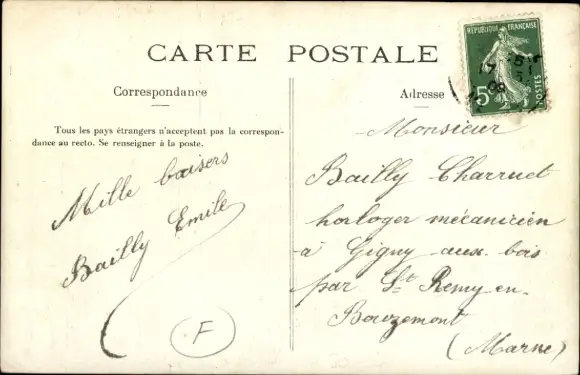 CARTE POSTALE
RÉPUBLIQUE FRANÇAISE
5
17 -5
08
POSTES
Correspondance
Adresse
Tous les pays étrangers n'acceptent pas la correspon-
dance au recto. Se renseigner à la poste.
Mille baisers
Bailly Emile
F
Monsieur
Bailly Charruet
horloger mécanicien
à Gigny aux bois
par St Remy en
Bouzemont
(Marne)